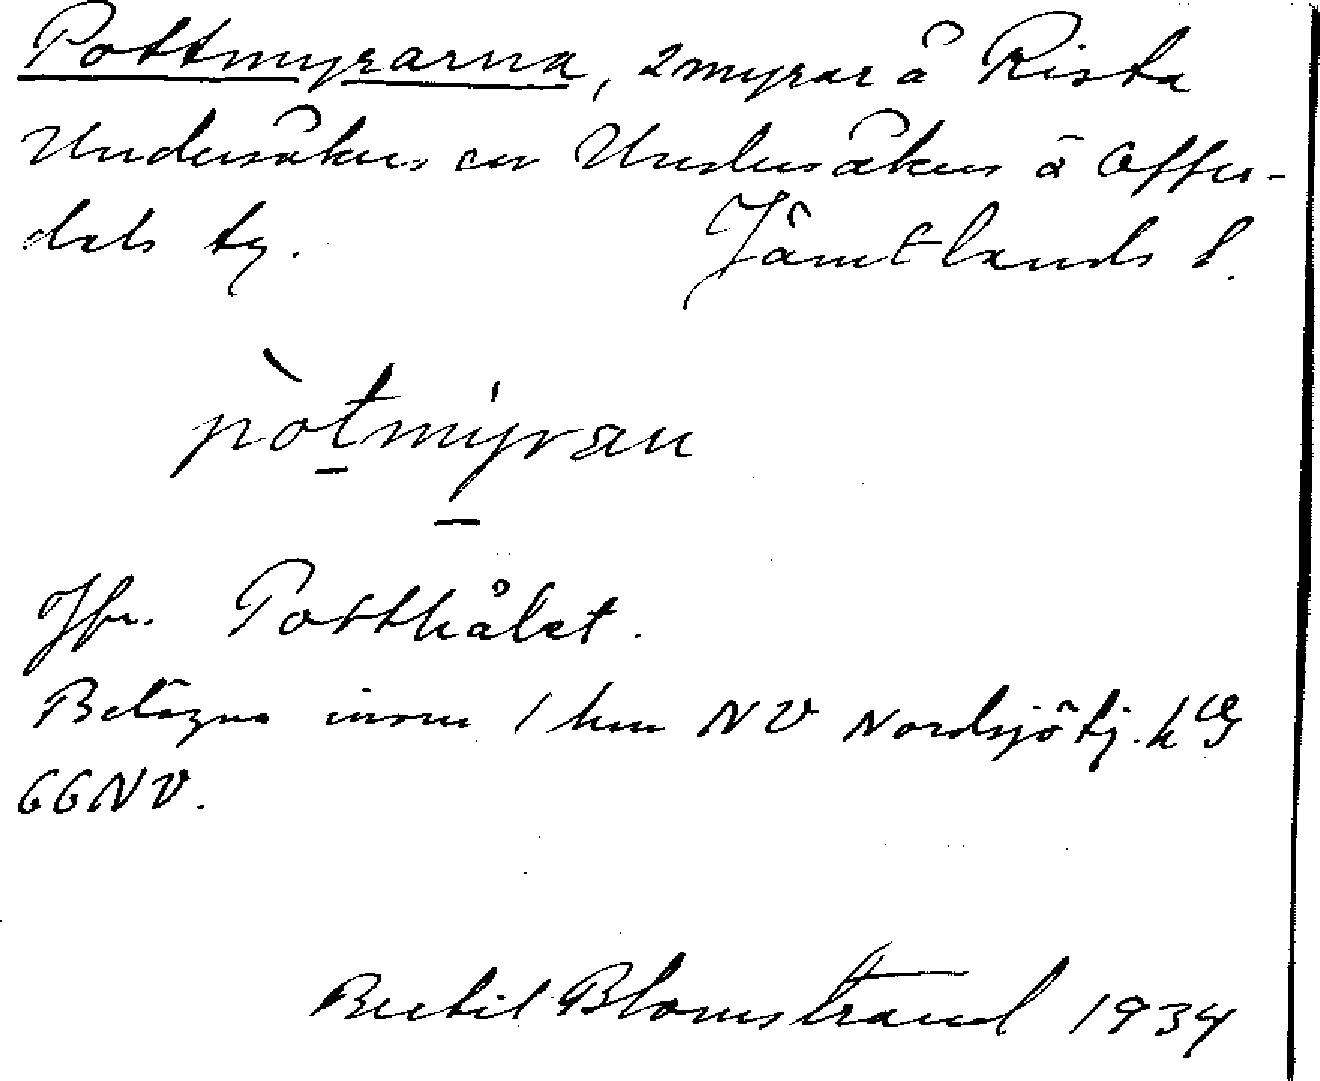 Pottmyrarna, 2 myrar å Rista
Undersåkers sn Undersåkers o Offer-
dals tg. Jämtlands l.
pòtmýran
Jfr. Potthålet.
Belägna inom 1 km NV Nordsjötj. kbl
66NV.
Bertil Blomstrand 1934